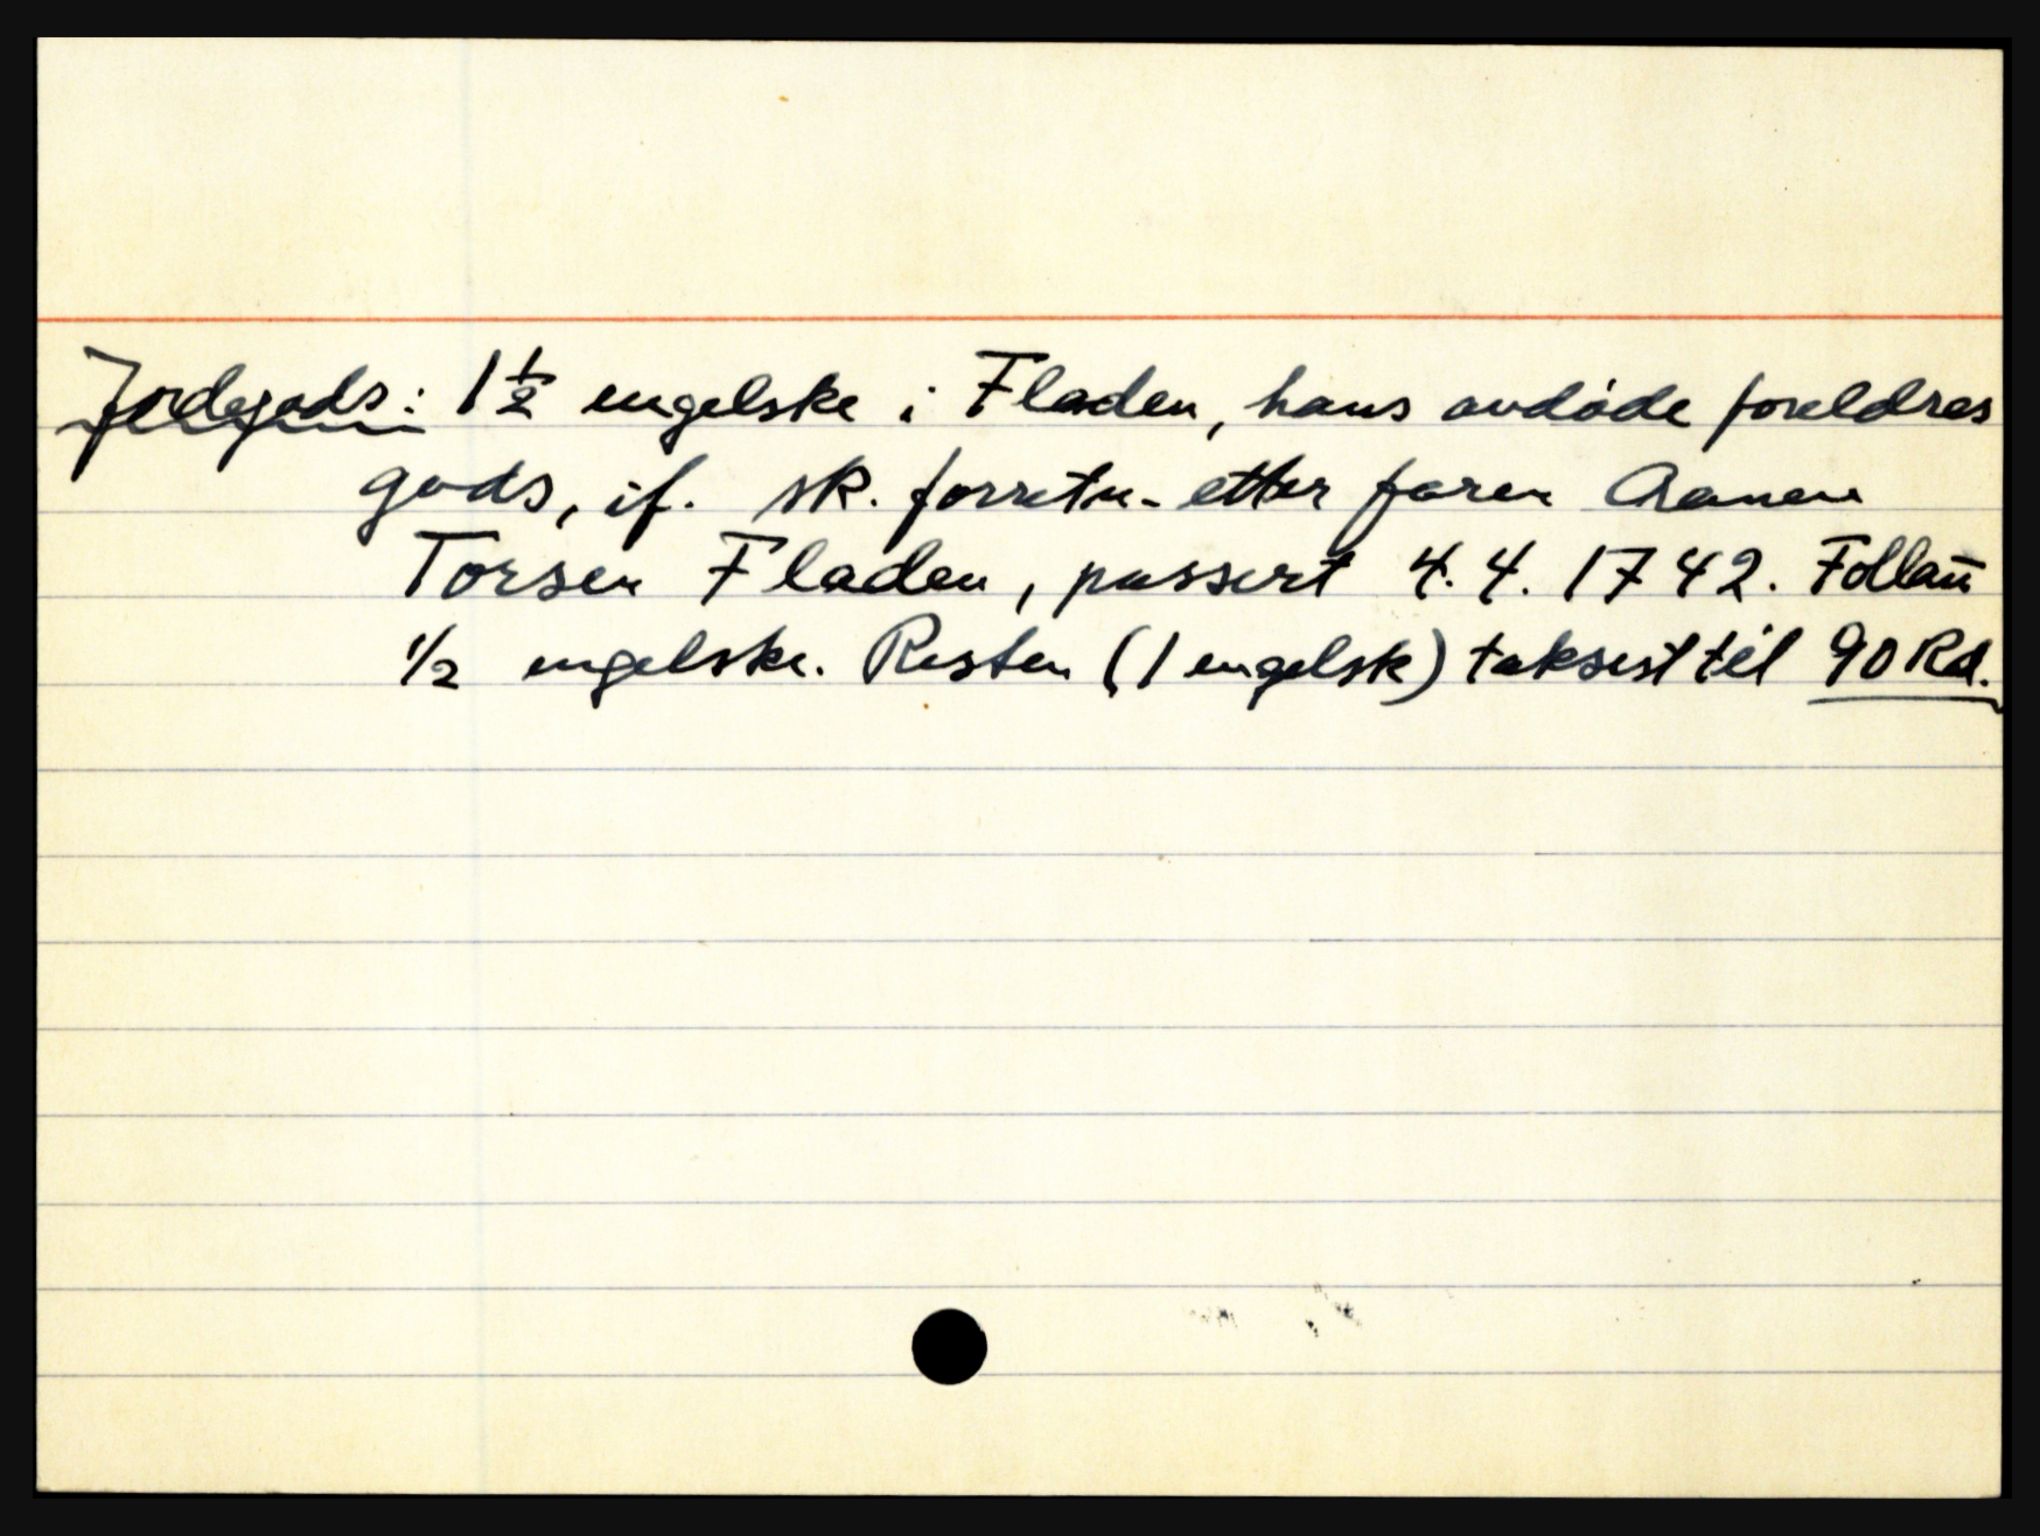 Jordegods: 1 1/2 engelske i Fladen, hans avdøde foreldres
gods, if. sk. forretn. etter faren Aanen
Torsen Fladen, passert 4.4. 1742.
1/2 engelske. Resten (1 engelsk) taksert til 90 Rd.